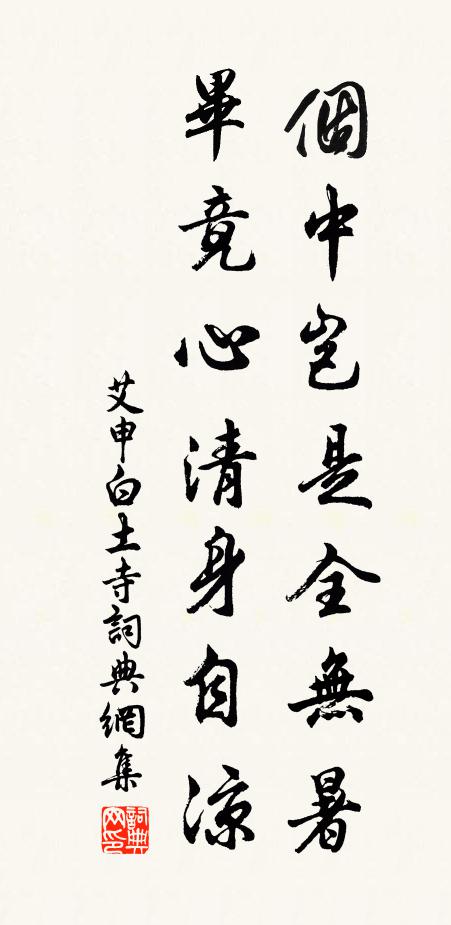 個中豈是全無暑
畢竟心清身自涼
艾申白土寺詞典網集
詞典網印